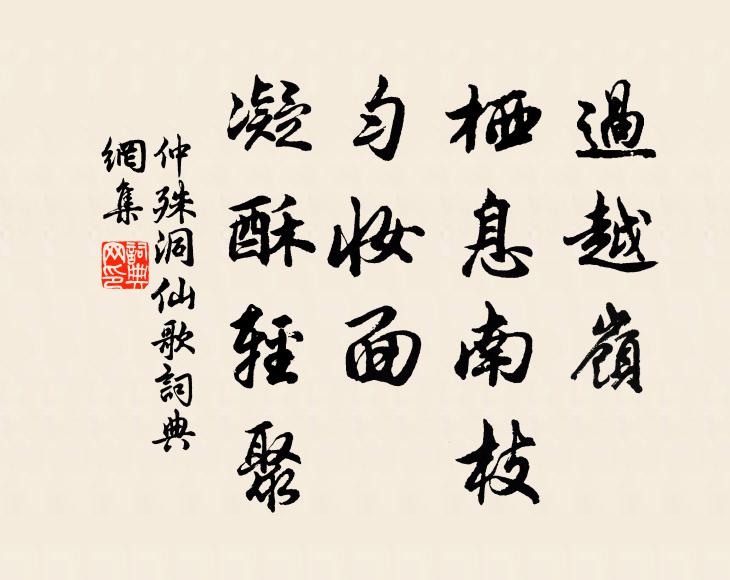 過越嶺
栖息南枝
匀妆面
凝酥輕聚
仲殊洞仙歌詞典
網集
詞典网印